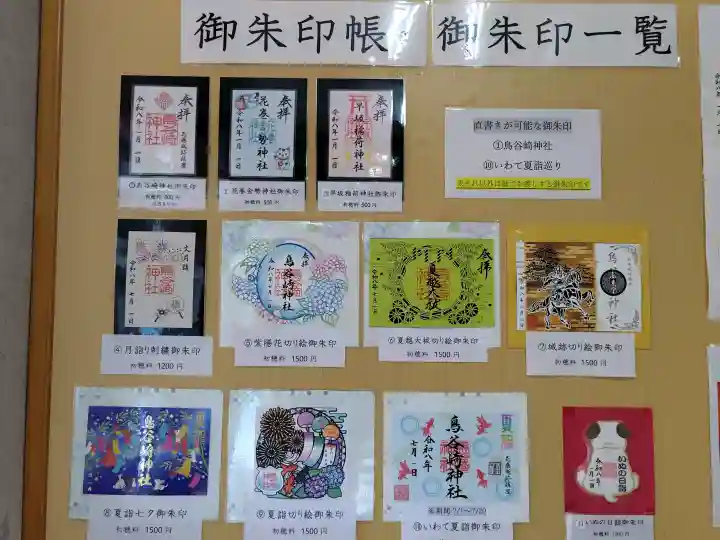 御朱印帳
御朱印一覧
奉拝
鳥谷崎神社
令和八年一月一日
①鳥谷崎神社御朱印
初穂料 500円
奉拝
花巻金勢神社
令和八年一月一日
初穂料 500円
奉拝
早坂稲荷神社
令和八年一月一日
③早坂稲荷神社御朱印
初穂料 500円
直書きが可能な御朱印
①鳥谷崎神社
⑩いわて夏詣巡り
文月詣
令和八年七月一日
④月詣り刺繍御朱印
初穂料 1200円
奉拝
鳥谷崎神社
⑤紫陽花切り絵御朱印
初穂料 1500円
奉拝
夏越大祓
⑥夏越大祓切り絵御朱印
初穂料 1500円
鳥谷崎神社
⑦城跡切り絵御朱印
初穂料 1500円
夏詣
鳥谷崎神社
⑧夏詣七夕御朱印
初穂料 1500円
⑨夏詣切り絵御朱印
初穂料 1500円
夏詣
鳥谷崎神社
令和八年
七月一日
※期間 7/1〜7/20
⑩いわて夏詣御朱印
いぬの日詣
令和八年
一月一日
⑪いぬの日詣御朱印